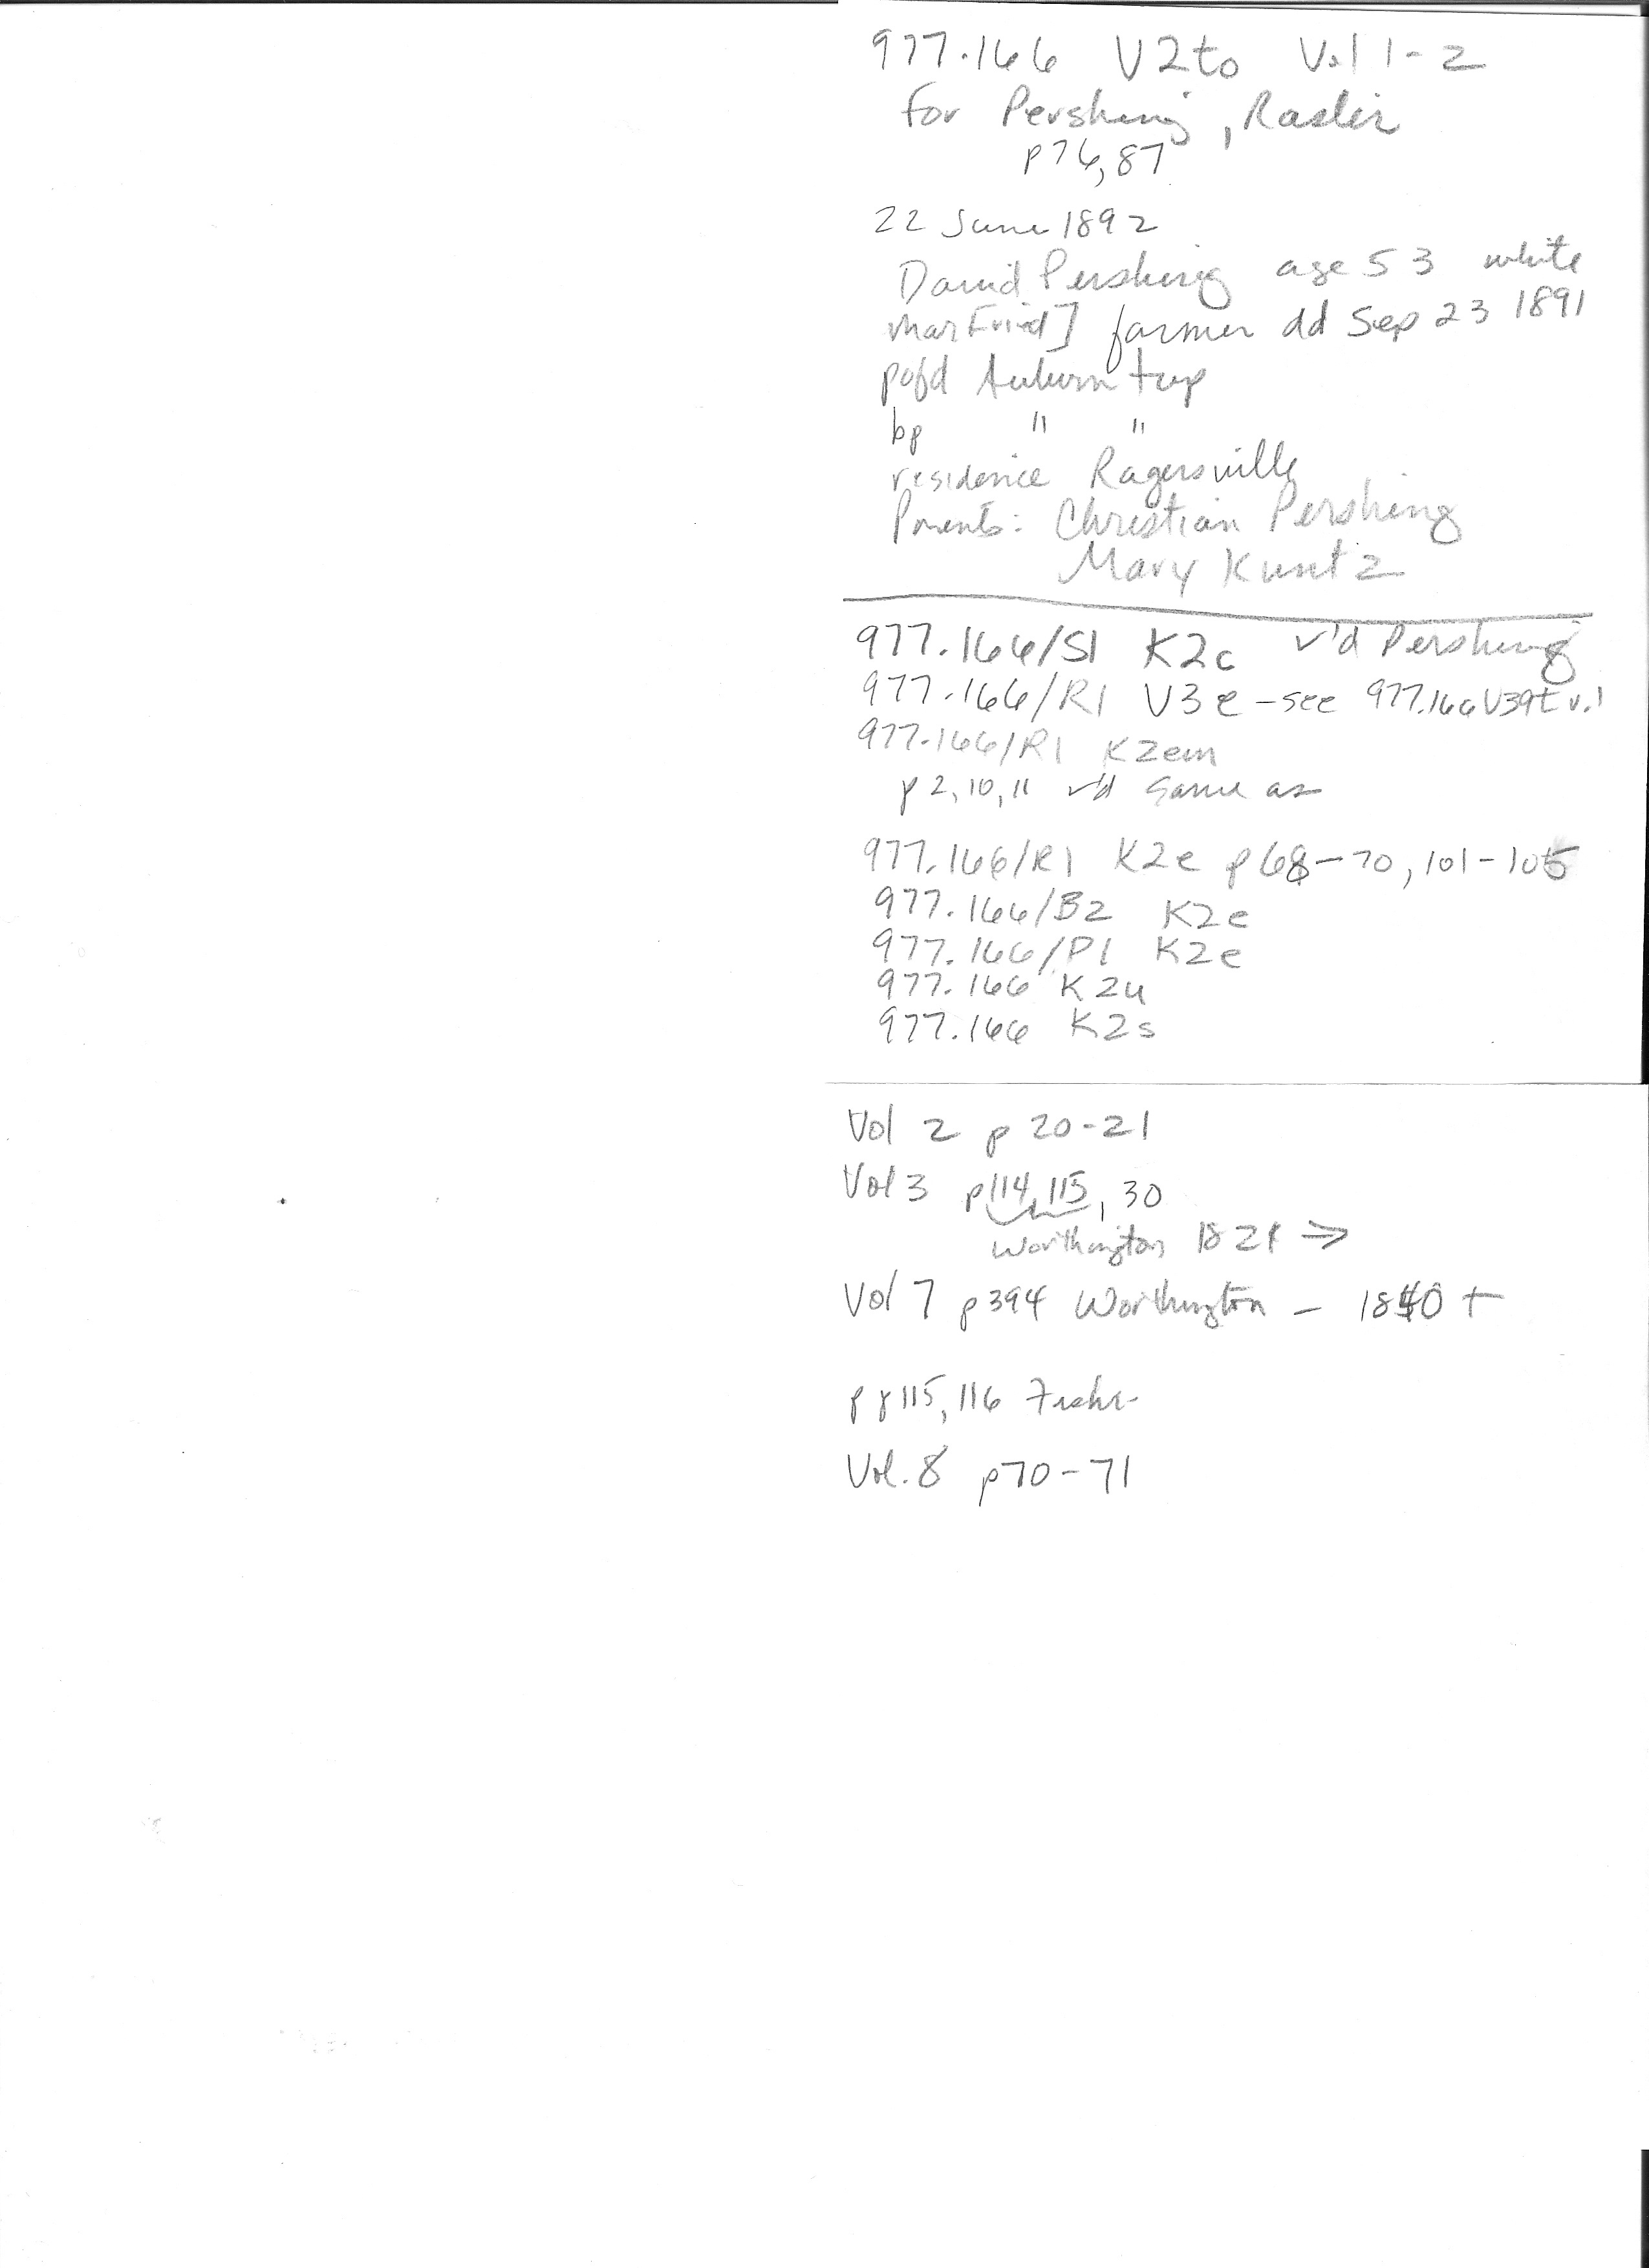 977.166 V2to Vol 1-2
for Pershing, Rasler
p76, 87
22 June 1892
David Pershing age 53 white
mar[ried] farmer dd Sep 23 1891
pofd Auburn twp
bp " "
residence Ragersville
Parents: Christian Pershing
Mary Kuntz
977.166/S1 K2c v'd Pershing
977.166/R1 V3e - see 977.166 V39t v.1
977.166/R1 K2em
p 2, 10, 11 v'd same as
977.166/R1 K2e p 68-70, 101-105
977.166/B2 K2e
977.166/P1 K2e
977.166 K2u
977.166 K2s
Vol 2 p 20-21
Vol 3 p114, 115, 30
Worthington 1821 ⇒
Vol 7 p394 Worthington - 1840 +
115, 116
Vol. 8 p70-71